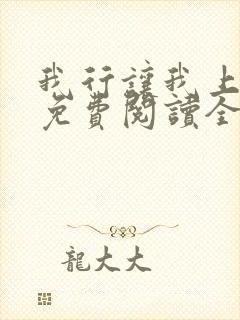 我行讓我上
免費閱讀全
龍大大